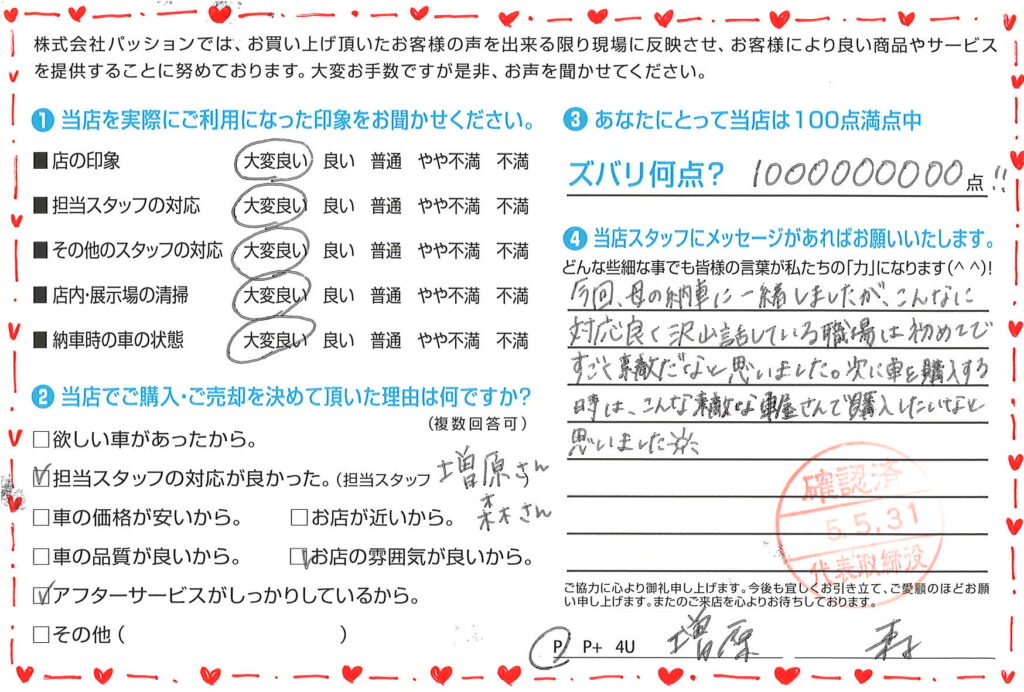 株式会社パッションでは、お買い上げ頂いたお客様の声を出来る限り現場に反映させ、お客様により良い商品やサービス
を提供することに努めております。大変お手数ですが是非、お声を聞かせてください。
❶ 当店を実際にご利用になった印象をお聞かせください。
■店の印象 大変良い 良い 普通 やや不満 不満
■担当スタッフの対応 大変良い 良い 普通 やや不満 不満
■その他のスタッフの対応 大変良い 良い 普通 やや不満 不満
■店内・展示場の清掃 大変良い 良い 普通 やや不満 不満
■納車時の車の状態 大変良い 良い 普通 やや不満 不満
❷ 当店でご購入・ご売却を決めて頂いた理由は何ですか?
(複数回答可)
□欲しい車があったから。
☑担当スタッフの対応が良かった。(担当スタッフ 増原さん
森さん
□車の価格が安いから。 □お店が近いから。
□車の品質が良いから。 ☑お店の雰囲気が良いから。
☑アフターサービスがしっかりしているから。
□その他( )
❸ あなたにとって当店は100点満点中
ズバリ何点? 1000000000点!!
❹ 当店スタッフにメッセージがあればお願いいたします。
どんな些細な事でも皆様の言葉が私たちの「力」になります(^ ^)!
今回、母の納車に一緒しましたが、こんなに
対応良く沢山話している職場は初めてで
すごく素敵だなと思いました。次に車を購入する
時は、こんな素敵な車屋さんで購入したいなと
思いました
確認済
5.5.31
代表取締役
ご協力に心より御礼申し上げます。今後も宜しくお引き立て、ご愛顧のほどお願
い申し上げます。またのご来店を心よりお待ちしております。
P P+ 4U 増原 森